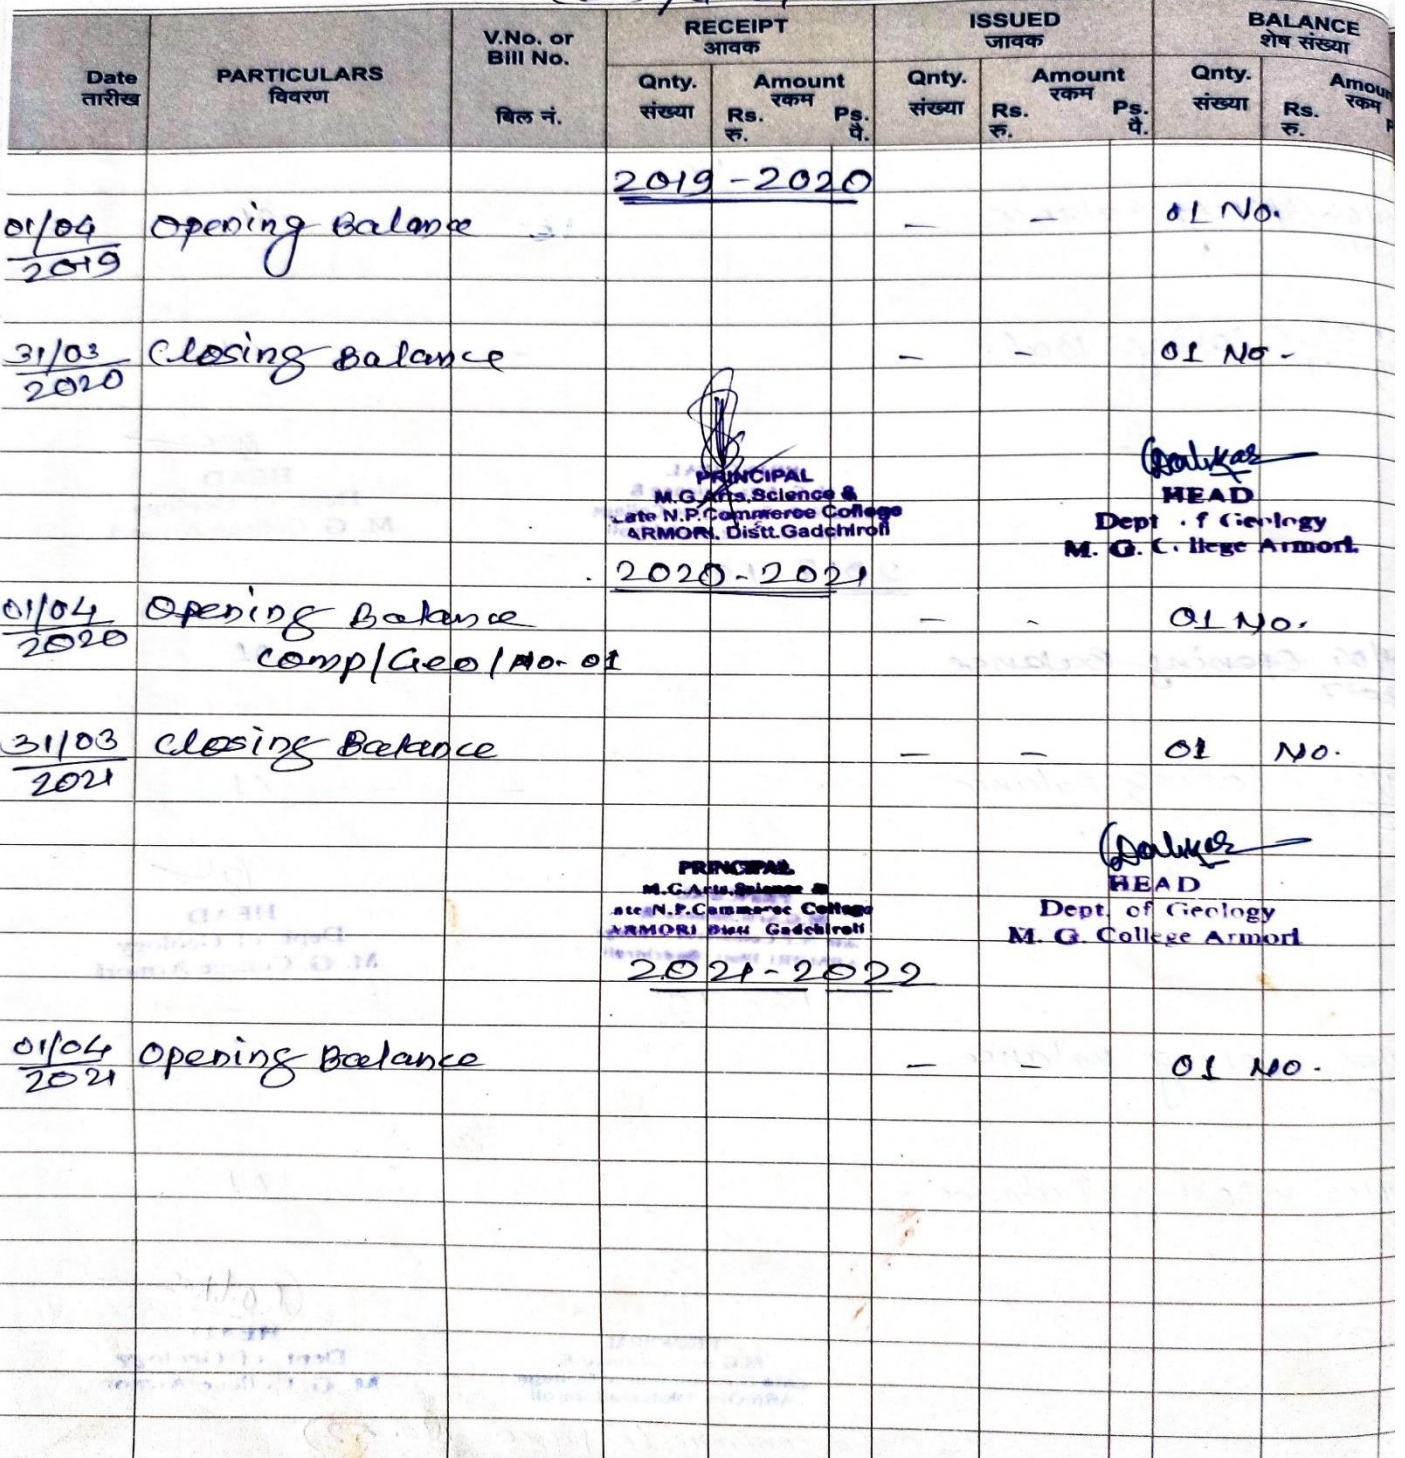 Date
तारीख
PARTICULARS
विवरण
V.No. or
Bill No.
बिल नं.
RECEIPT
आवक
Qnty.
संख्या
Amount
रकम
Rs.
रु.
Ps.
पै.
ISSUED
जावक
Qnty.
संख्या
Amount
रकम
Rs.
रु.
Ps.
पै.
BALANCE
शेष संख्या
Qnty.
संख्या
Amoun
रकम
Rs.
रु.
2019-2020
01/04 Opening Balance - - 01 No.
2019
31/03 Closing Balance - - 01 No-
2020
PRINCIPAL
M.G.Arts,Science &
Late N.P.Commerce College
ARMORI. Distt.Gadchiroli
HEAD
Dept . f Geology
M. G. C. llege Armori.
2020-2021
01/04 Opening Balance - - 01 No.
2020
Comp/Geo/No-01
31/03 Closing Balance - - 01 No.
2021
PRINCIPAL
M.G.Arts,Science &
ate N.P.Commerce College
ARMORI Distt Gadchiroli
HEAD
Dept. of Geology
M. G. College Armori
2021-2022
01/04 Opening Balance - - 01 No.
2021